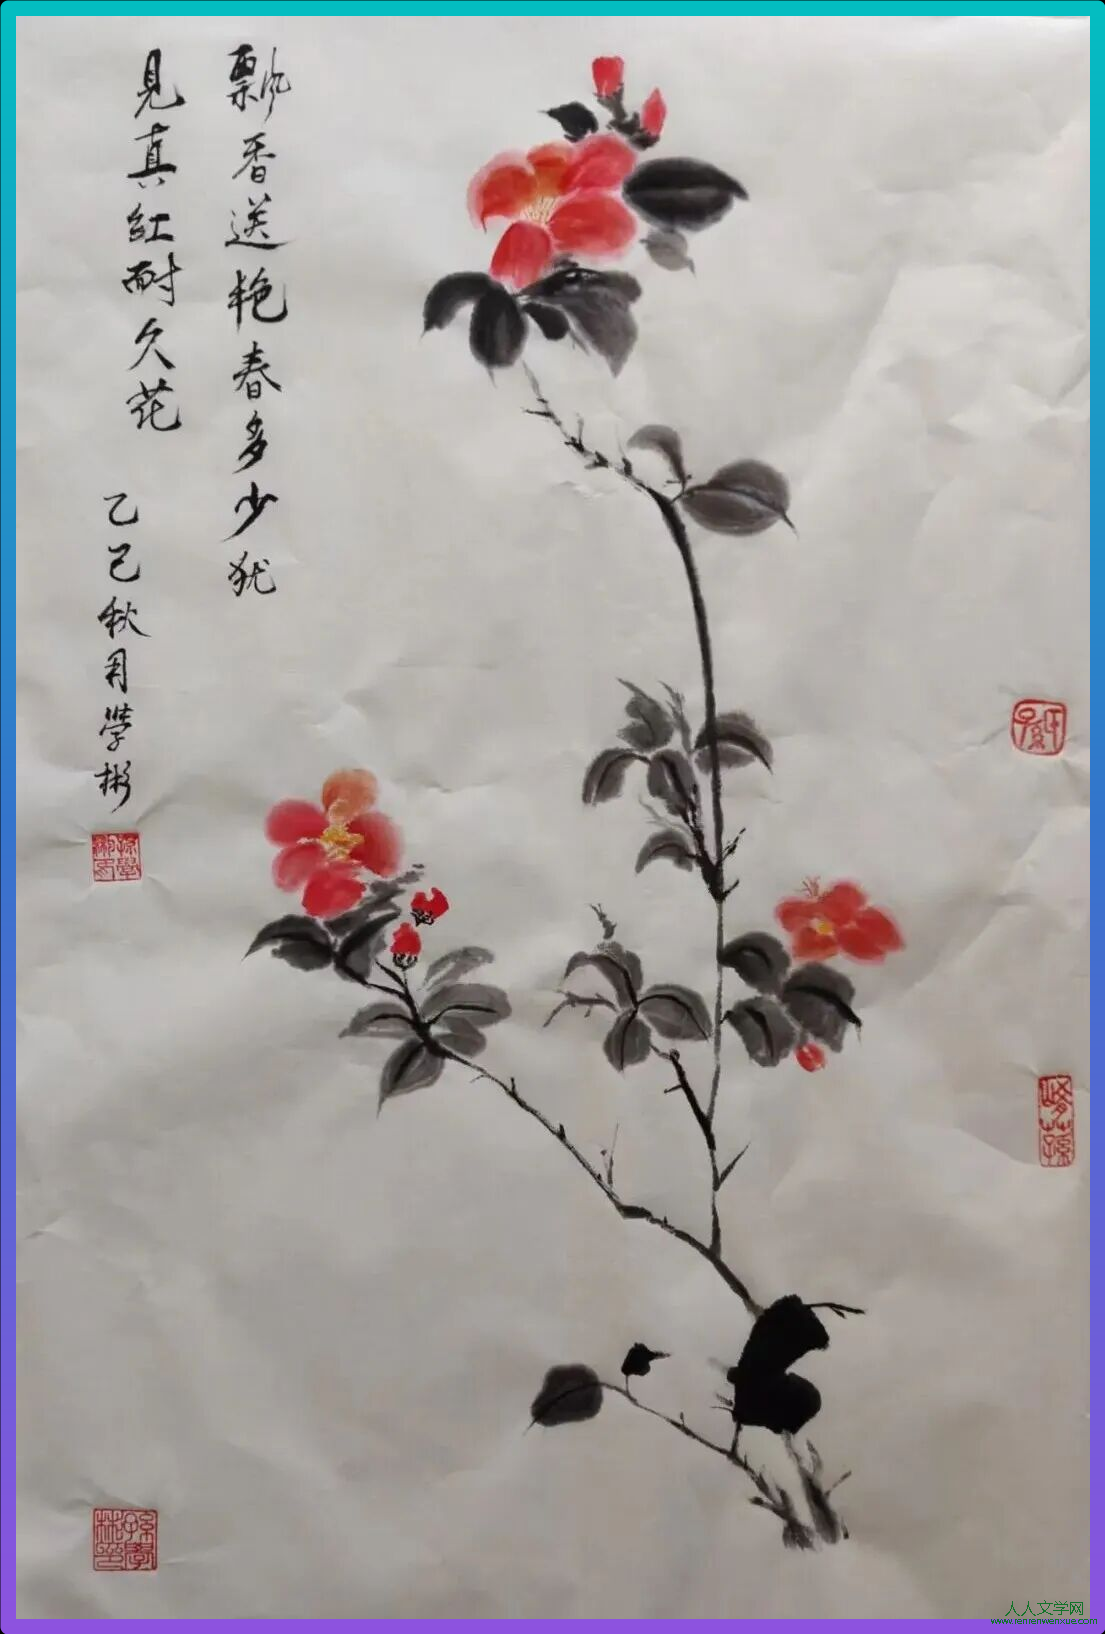 飘香送艳春多少犹
见真红耐久花
乙巳秋月学彬
人人文学网
www.renrenwenxue.com